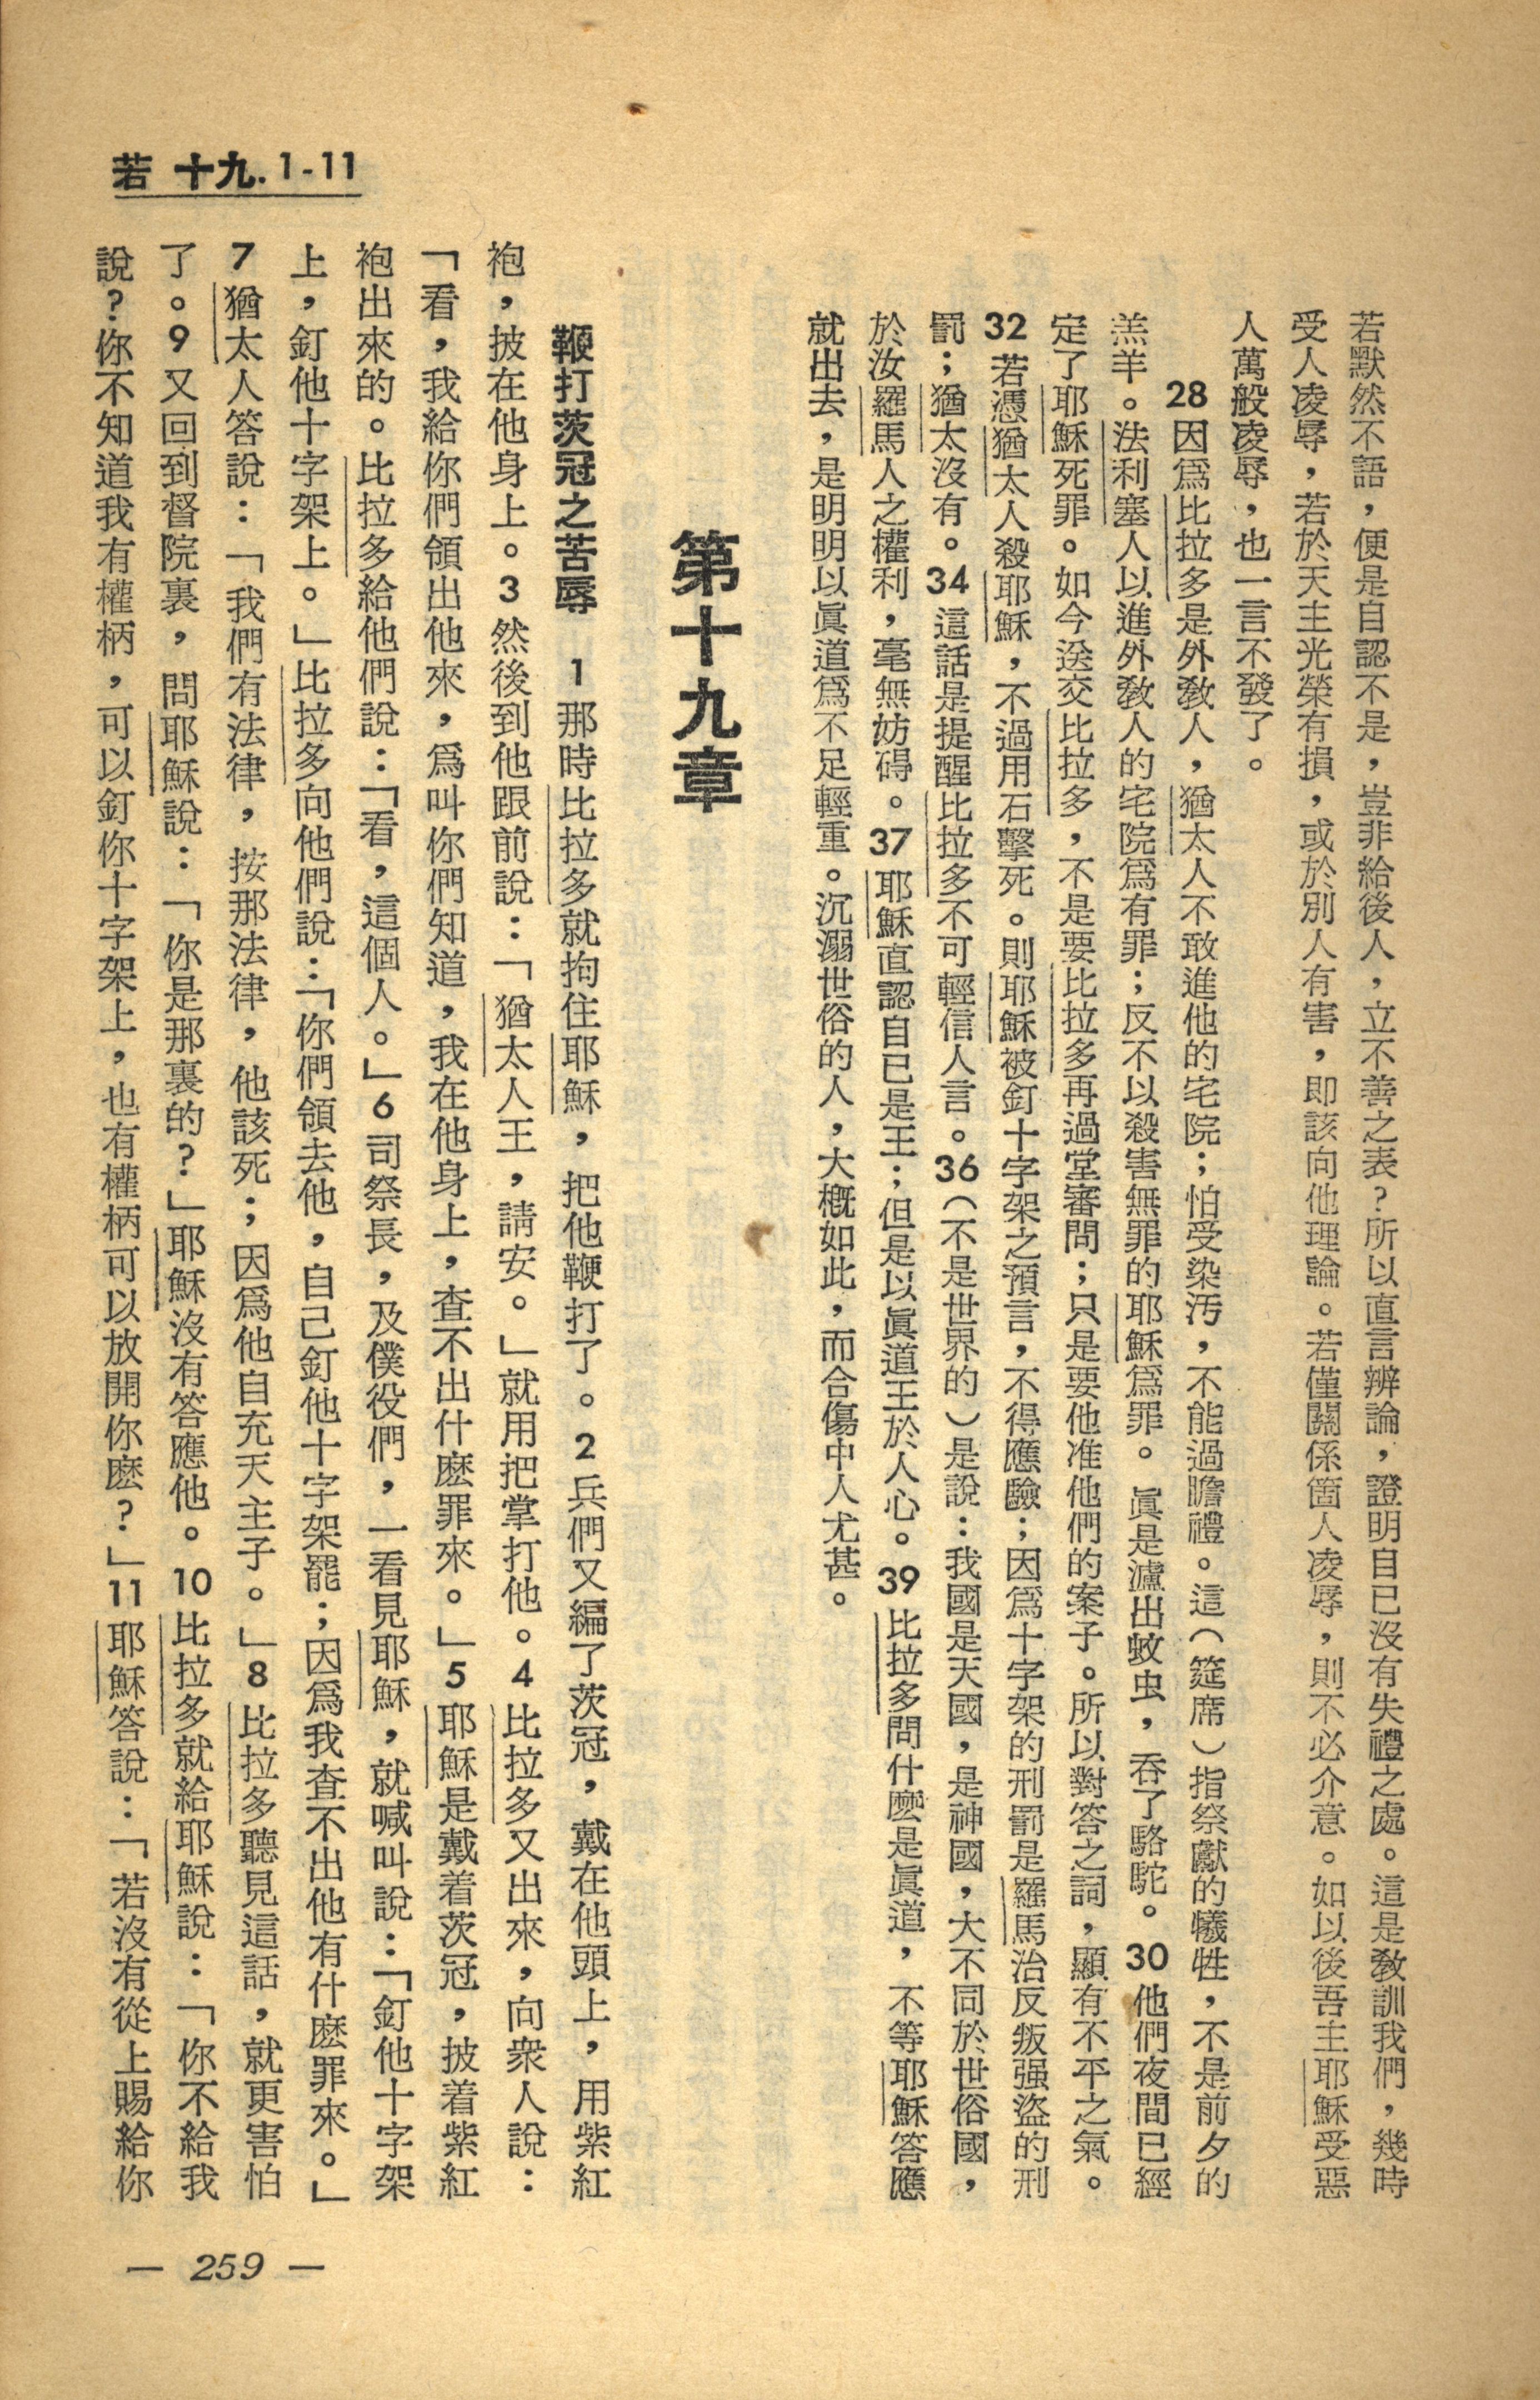 若 十九. 1-11
若默然不語，便是自認不是，豈非給後人，立不善之表？所以直言辨論，證明自已沒有失禮之處。這是教訓我們，幾時
受人凌辱，若於天主光榮有損，或於別人有害，即該向他理論。若僅關係箇人凌辱，則不必介意。如以後吾主耶穌受惡
人萬般凌辱，也一言不發了。
28因爲比拉多是外教人，猶太人不敢進他的宅院；怕受染汚，不能過瞻禮。這（筵席）指祭獻的犧牲，不是前夕的
羔羊。法利塞人以進外教人的宅院爲有罪；反不以殺害無罪的耶穌爲罪。眞是濾出蚊虫，吞了駱駝。30他們夜間已經
定了耶穌死罪。如今送交比拉多，不是要比拉多再過堂審問；只是要他准他們的案子。所以對答之詞，顯有不平之氣。
32若憑猶太人殺耶穌，不過用石擊死。則耶穌被釘十字架之預言，不得應驗；因爲十字架的刑罰是羅馬治反叛强盜的刑
罰；猶太沒有。34這話是提醒比拉多不可輕信人言。36（不是世界的）是說：我國是天國，是神國，大不同於世俗國，
於汝羅馬人之權利，毫無妨碍。37耶穌直認自已是王；但是以眞道王於人心。39比拉多問什麽是眞道，不等耶穌答應
就出去，是明明以眞道爲不足輕重。沉溺世俗的人，大概如此，而合傷中人尤甚。
第十九章
鞭打茨冠之苦辱 1那時比拉多就拘住耶穌，把他鞭打了。2兵們又編了茨冠，戴在他頭上，用紫紅
袍，披在他身上。3然後到他跟前說：「猶太人王，請安。」就用把掌打他。4比拉多又出來，向衆人說：
「看，我給你們領出他來，爲叫你們知道，我在他身上，查不出什麽罪來。」5耶穌是戴着茨冠，披着紫紅
袍出來的。比拉多給他們說：「看，這個人。」6司祭長，及僕役們，一看見耶穌，就喊叫說：「釘他十字架
上，釘他十字架上。」比拉多向他們說：「你們領去他，自己釘他十字架罷；因爲我查不出他有什麽罪來。」
7猶太人答說：「我們有法律，按那法律，他該死；因爲他自充天主子。」8比拉多聽見這話，就更害怕
了。9又回到督院裏，問耶穌說：「你是那裏的？」耶穌沒有答應他。10比拉多就給耶穌說：「你不給我
說？你不知道我有權柄，可以釘你十字架上，也有權柄可以放開你麽？」11耶穌答說：「若沒有從上賜給你
— 259 —